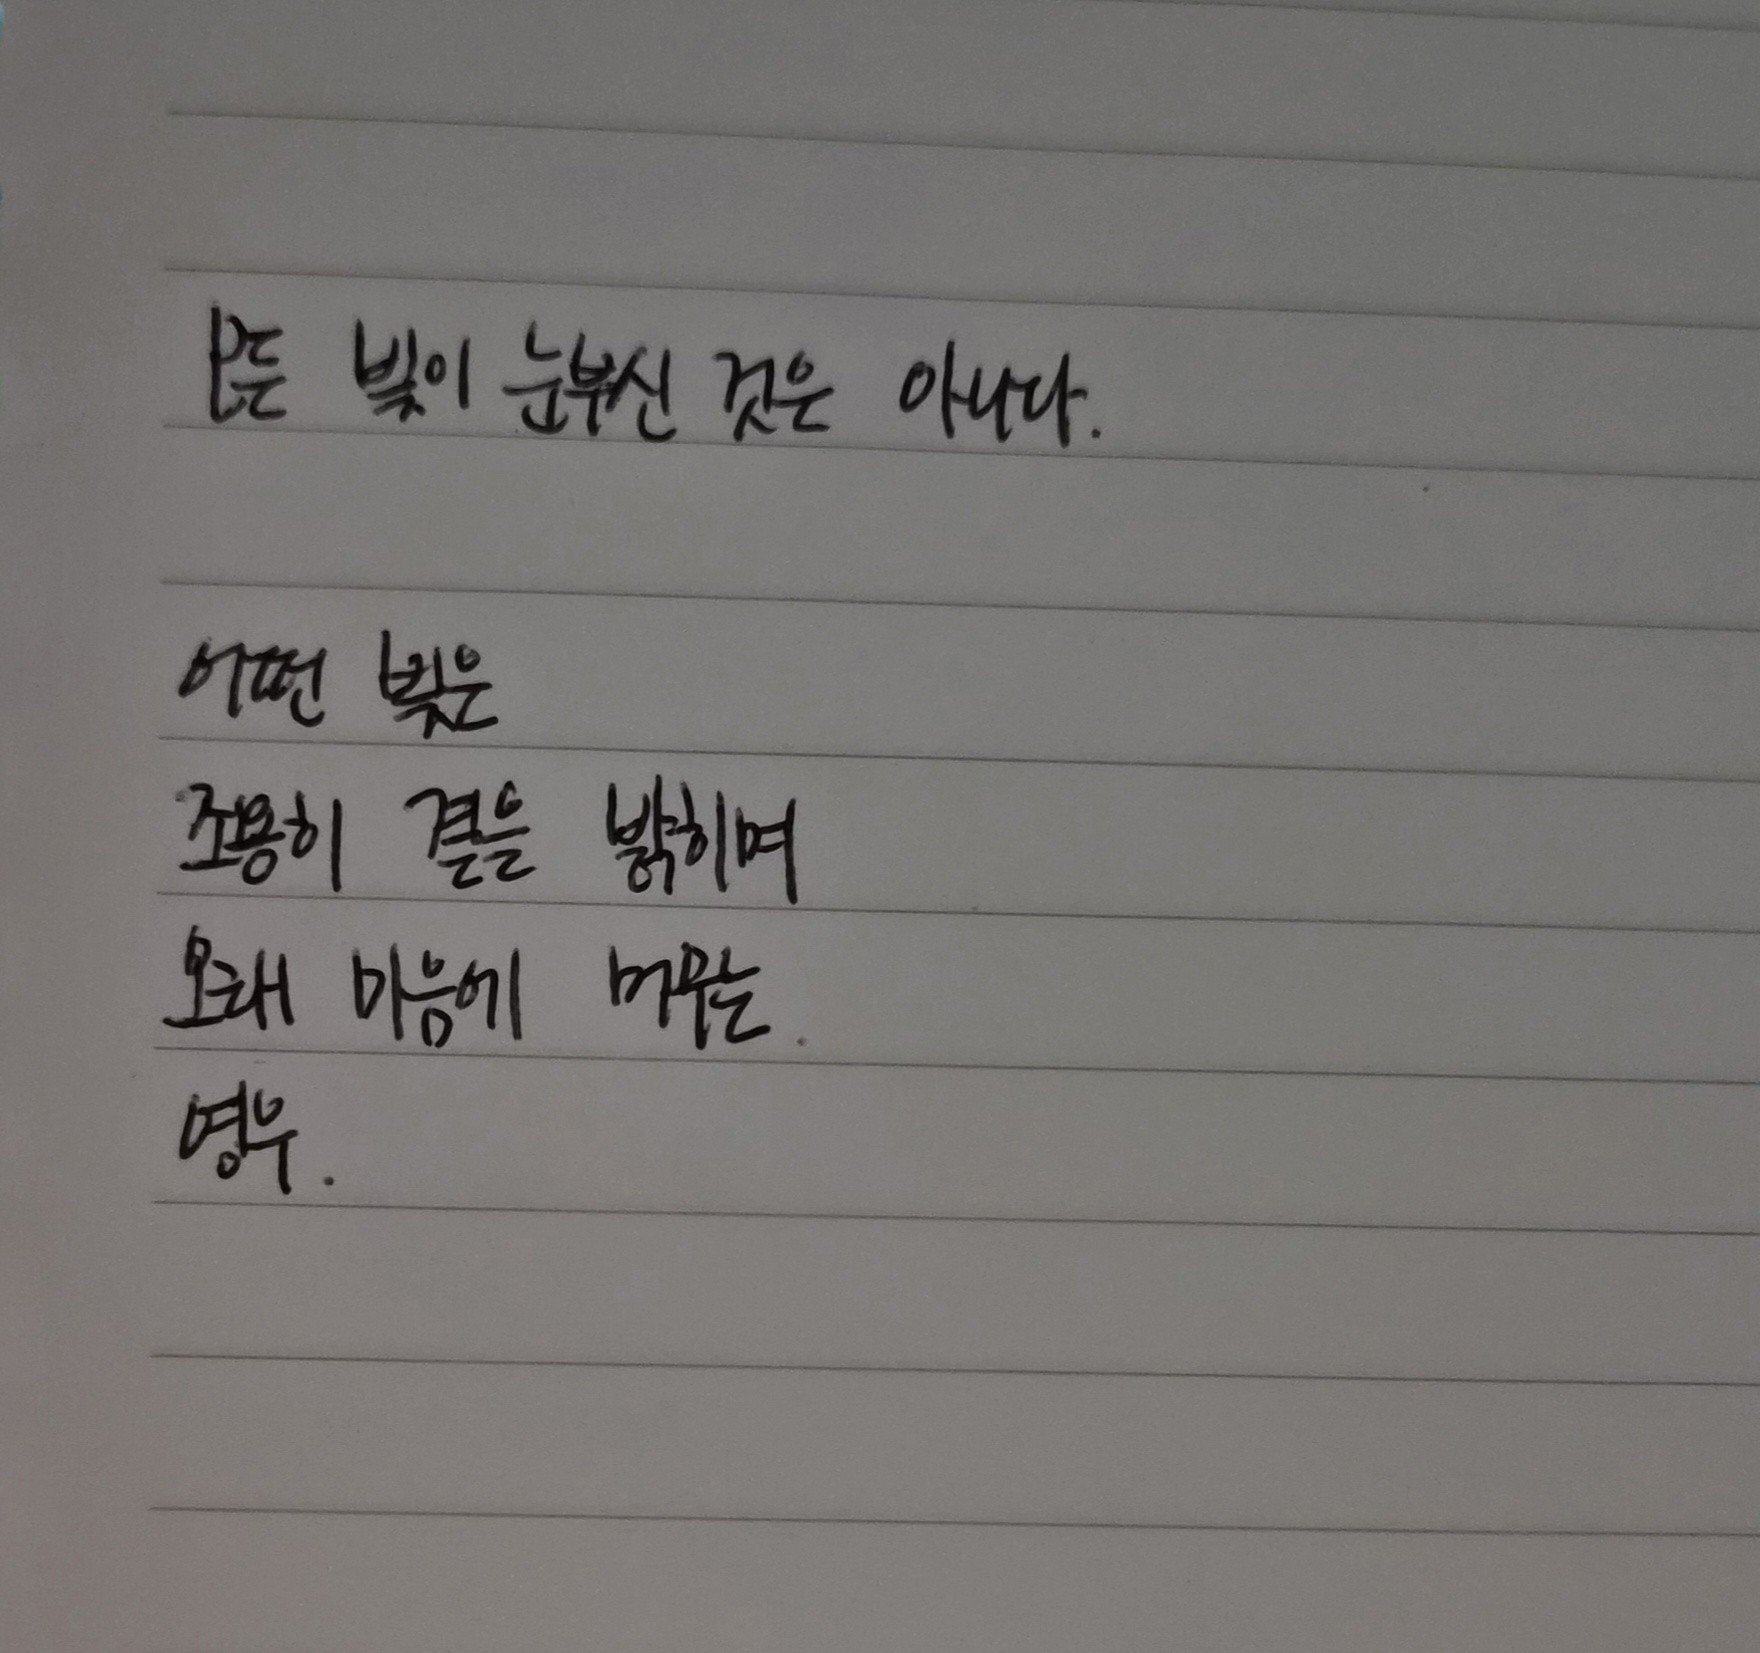 모든 빛이 눈부신 것은 아니다.
어떤 빛은
조용히 곁을 밝히며
오래 마음에 머무는.
영우.